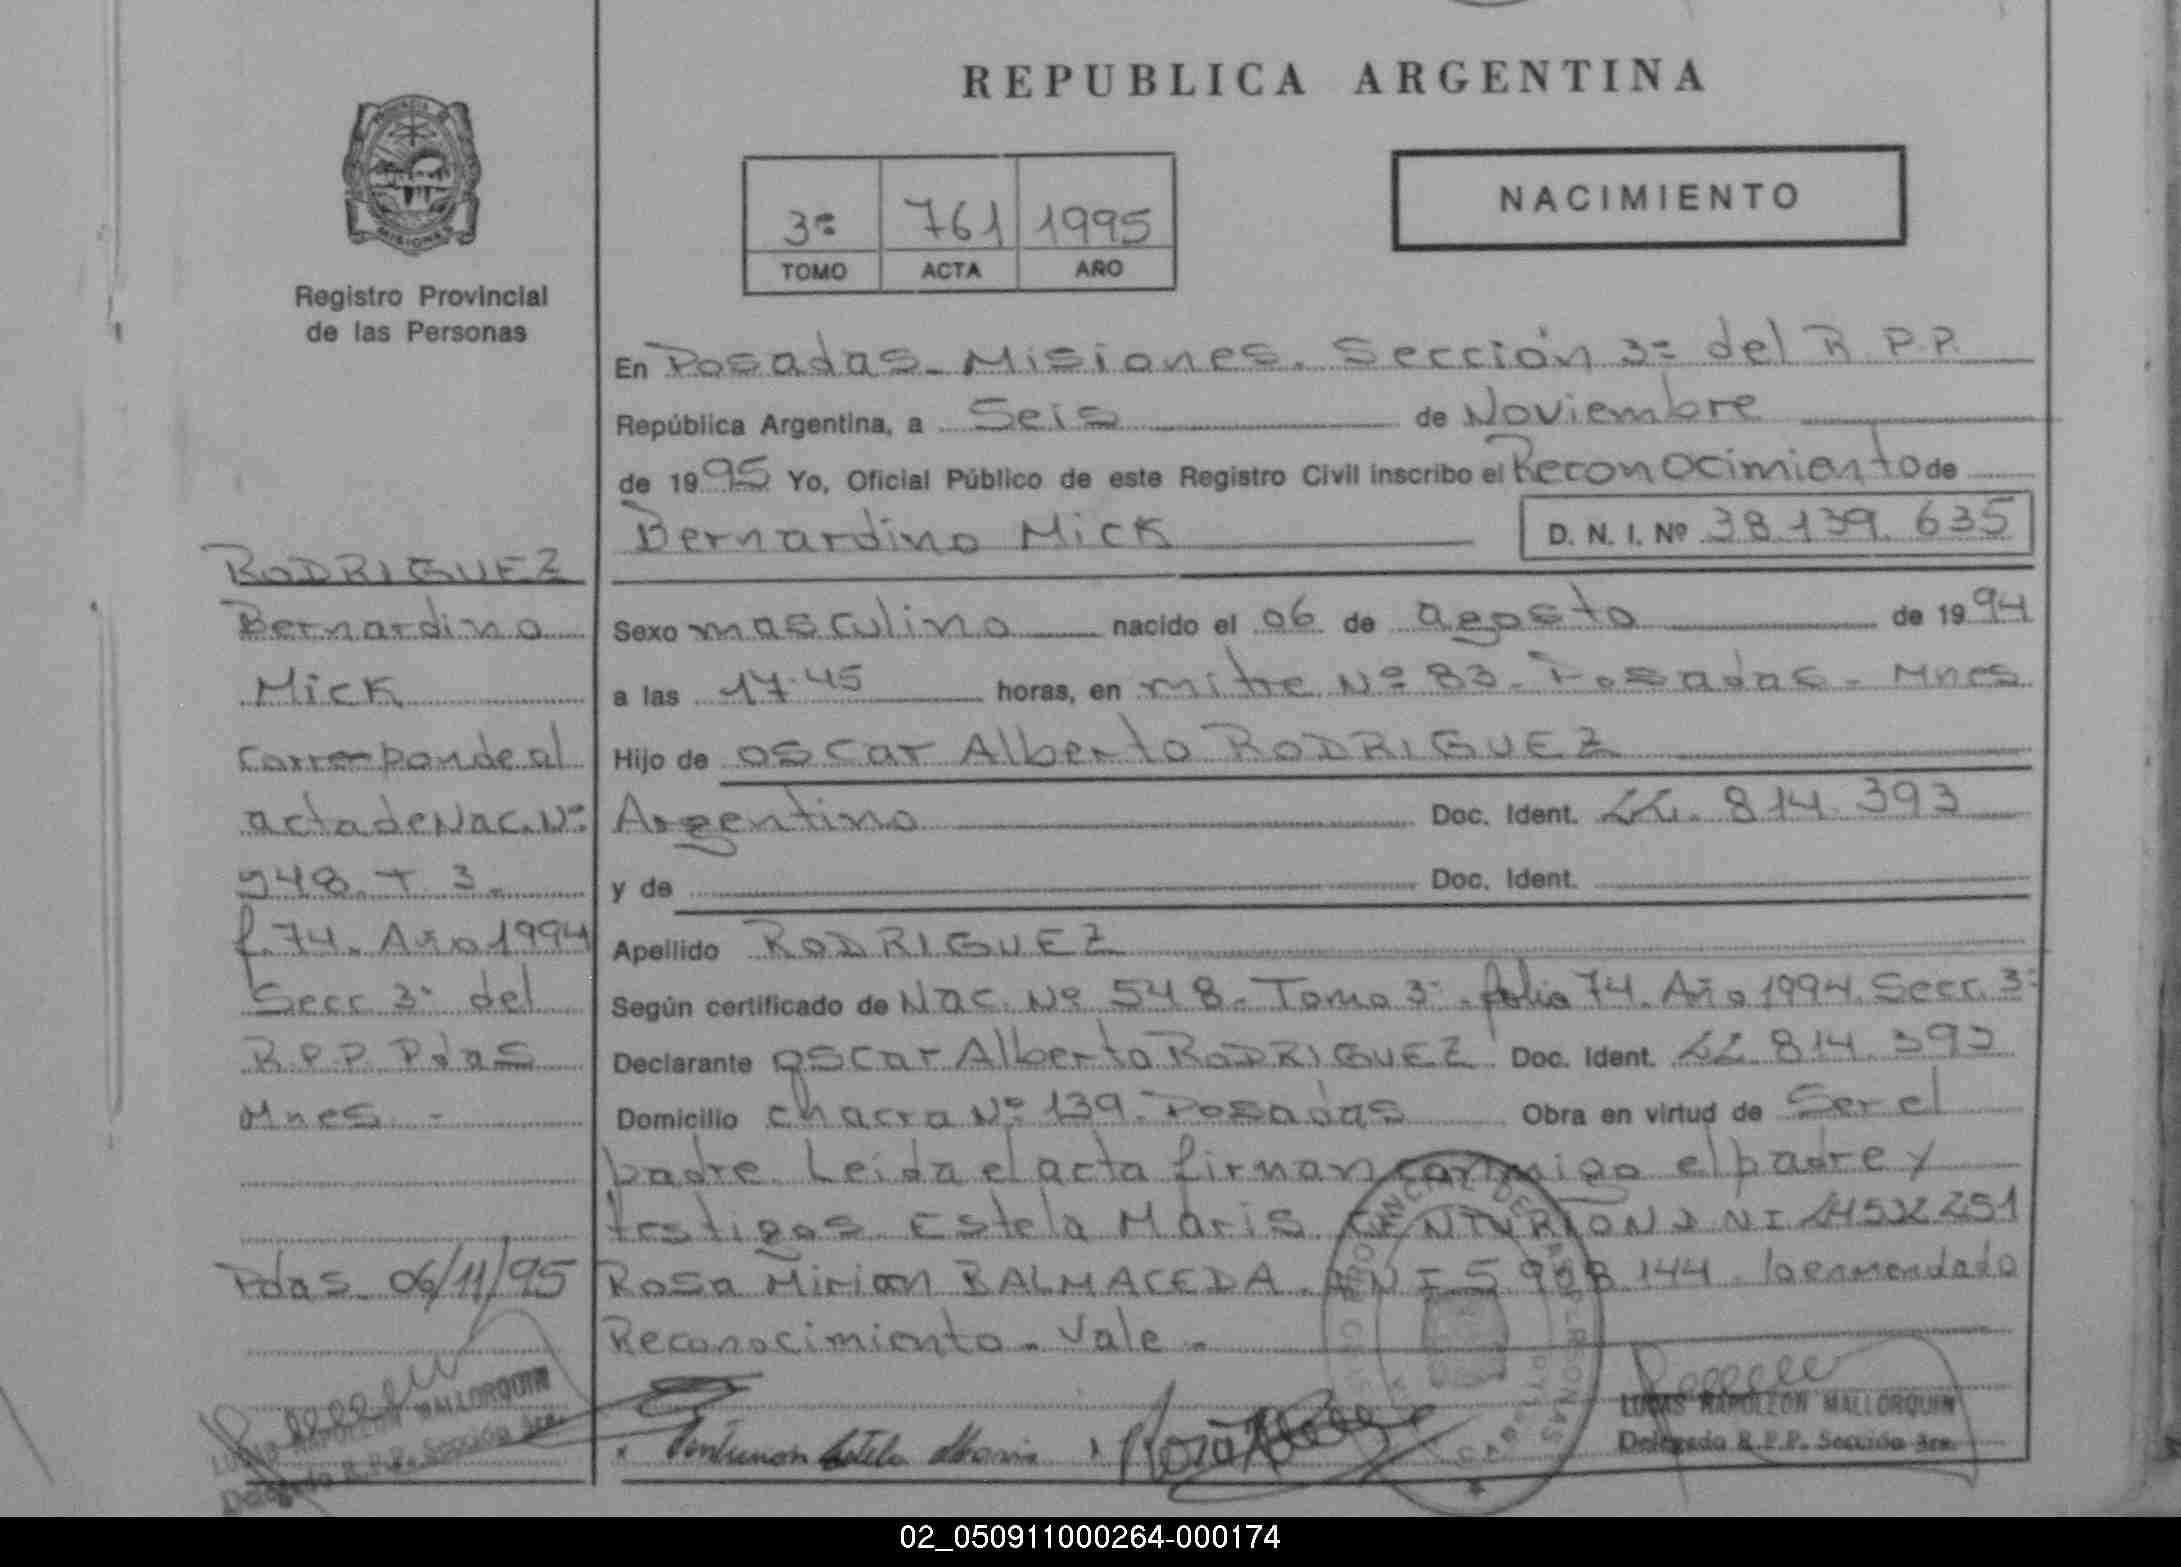 REPUBLICA ARGENTINA
PROVINCIA
MISIONES
Registro Provincial
de las Personas
3ª 761 1995
TOMO ACTA AÑO
NACIMIENTO
En Posadas - Misiones. Sección 3ª del R.P.P.
República Argentina, a Seis de Noviembre
de 1995 Yo, Oficial Público de este Registro Civil inscribo el Reconocimiento de
Bernardino Mick D. N. I. Nº 38.139.635
Sexo masculino nacido el 06 de agosto de 1994
a las 17.45 horas, en mitre Nº 83 - Posadas - Mnes
Hijo de Oscar Alberto RODRIGUEZ
Argentino Doc. Ident. 814.393
y de Doc. Ident.
Apellido RODRIGUEZ
Según certificado de Nac. Nº 548. Tomo 3º. folio 74. Año 1994. Secc. 3ª
Declarante Oscar Alberto RODRIGUEZ Doc. Ident. 814.393
Domicilio chacra Nº 139. Posadas Obra en virtud de Ser el
padre. Leida el acta firman conmigo el padre y
testigos Estela Maris CENTURION DNI
Rosa Mirian BALMACEDA. DNI 5.908.144. lo enmendado
Reconocimiento. Vale.
RODRIGUEZ
Bernardino
Mick
Corresponde al
acta de Nac. Nº
548. T. 3.
f. 74. Año 1994
Secc. 3ª del
R.P.P. Pdas
Mnes. -
Pdas. 06/11/95
LUCAS NAPOLEON MALLORQUIN
Delegado R.P.P. Sección 3ra.
Centurion Estela Maris
Rosa
LUCAS NAPOLEON MALLORQUIN
Delegado R.P.P. Sección 3ra.
02_050911000264-000174